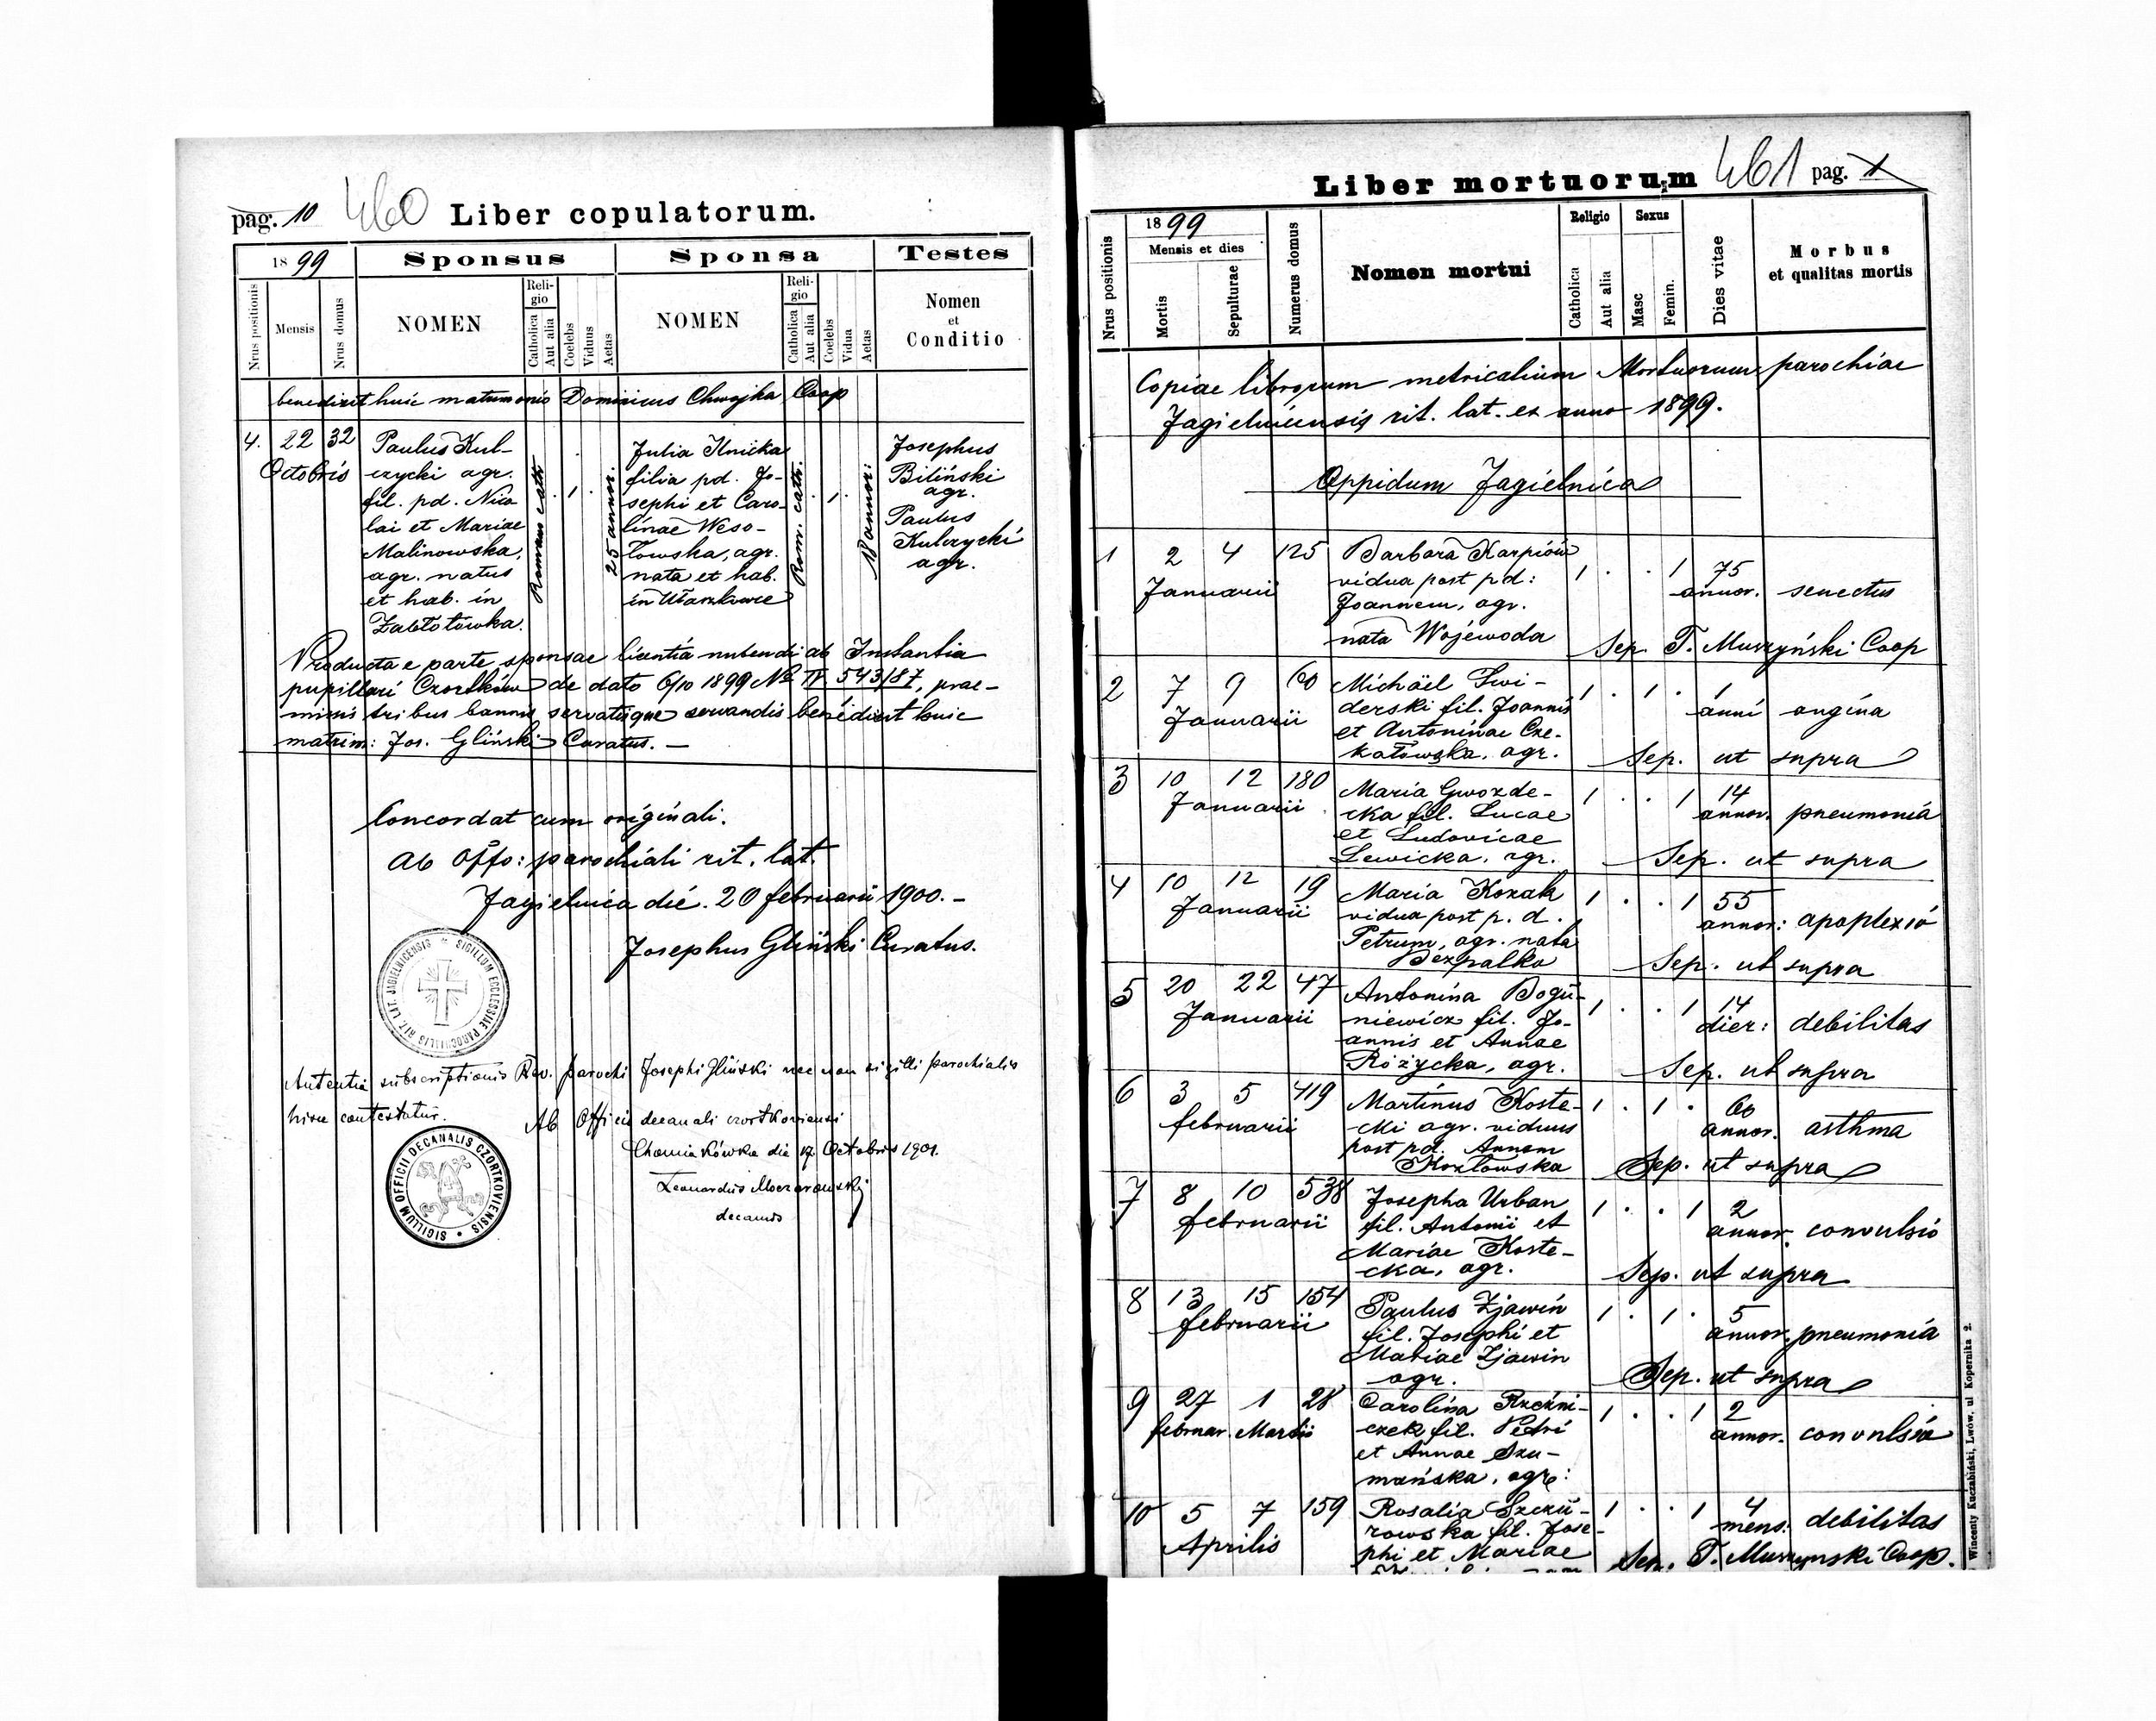 pag. 10 460 Liber copulatorum.
1899 Sponsus Sponsa Testes
Nrus positionis Mensis Nrus domus NOMEN Religio Catholica Aut alia Coelebs Viduus Aetas NOMEN Religio Catholica Aut alia Coelebs Vidua Aetas Nomen et Conditio
benedixit huic matrimonio Dominicus Chwojka Coop
4. 22 32 Paulus Kul- Julia Ilnicka Josephus
Octobris czycki agr. filia pd. Jo- Biliński
fil. pd. Nico 1 sephi et Caro- 1 agr.
lai et Mariae linae Weso- Paulus
Malinowska, łowska, agr. Kulczycki
agr. natus nata et hab. agr.
et hab. in in Ułaszkowce
Zabłotówka.
Romano cath
25 annor.
Rom. cath.
18 annor:
Producta e parte sponsae licentia nubendi ab Instantia
pupillari Czortków de dato 6/10 1899 No IV 543/87, prae-
missis tribus bannis servatisque servandis benedixit huic
matrim: Jos. Gliński Curatus. —
Concordat cum originali.
Ab Offo: parochiali rit. lat.
Jagielnica die. 20 februarii 1900. —
Josephus Gliński Curatus.
SIGILLUM ECCLESIAE PAROCHIALIS RIT. LAT. JAGIELNICENSIS
subscriptionis Rev. parochi Josephi Gliński nec non sigilli parochialis
hisce contestatur.
Ab Officio decanali czortkoviensi
Chomiakówka die 17 Octobris 1901.
Leonardus
decanus
SIGILLUM OFFICII DECANALIS CZORTKOVIENSIS
Liber mortuorum 461 pag. 1
Nrus positionis 1899 Mensis et dies Mortis Sepulturae Numerus domus Nomen mortui Religio Catholica Aut alia Sexus Masc Femin. Dies vitae Morbus et qualitas mortis
Copiae librorum metricalium Mortuorum parochiae
Jagielnicensis rit. lat. ex anno 1899.
Oppidum Jagielnica
1 2 4 125 Barbara Karpiów
Januarii vidua post pd: 1 . . 1 75
Joannem, agr. annor. senectus
nata Wojewoda Sep. T. Muszyński Coop
2 7 9 60 Michäel Swi- 1 . 1 . 1
Januarii derski fil. Joannis anni angina
et Antoninae Cze-
kałowska, agr. Sep. ut supra
3 10 12 180 Maria Gwozde- 1 . . 1 14
Januarii cka fil. Lucae annor. pneumonia
et Ludovicae
Lewicka, agr. Sep. ut supra
4 10 12 19 Maria Kozak 1 . . 1 55
Januarii vidua post p. d. annor: apoplexio
Petrum, agr. nata
Bezpalko Sep. ut supra
5 20 22 47 Antonina Bogu- 1 . . 1 14
Januarii niewicz fil. Jo- dier: debilitas
annis et Annae
Różycka, agr. Sep. ut supra
6 3 5 419 Martinus Koste- 1 . 1 . 60
februarii cki agr. viduus annor. asthma
post pd. Annam
Kozłowska Sep. ut supra
7 8 10 538 Josepha Urban 1 . . 1 2
februarii fil. Antonii et annor. convulsio
Mariae Koste-
cka, agr. Sep. ut supra
8 13 15 154 Paulus Zjawin 1 . 1 . 5
februarii fil. Josephi et annor. pneumonia
Mariae Zjawin
agr. Sep. ut supra
9 27 1 28 Carolina Rzeźni- 1 . . 1 2
februar. Martii czek fil. Petri annor. convulsio
et Annae Szu-
mańska, agr:
10 5 7 159 Rosalia Szczu- 1 . . 1 4
Aprilis rowska fil. Jose- mens: debilitas
phi et Mariae Sep. T. Muszyński Coop.
Wincenty Kuczabiński, Lwów, ul Kopernika 2.